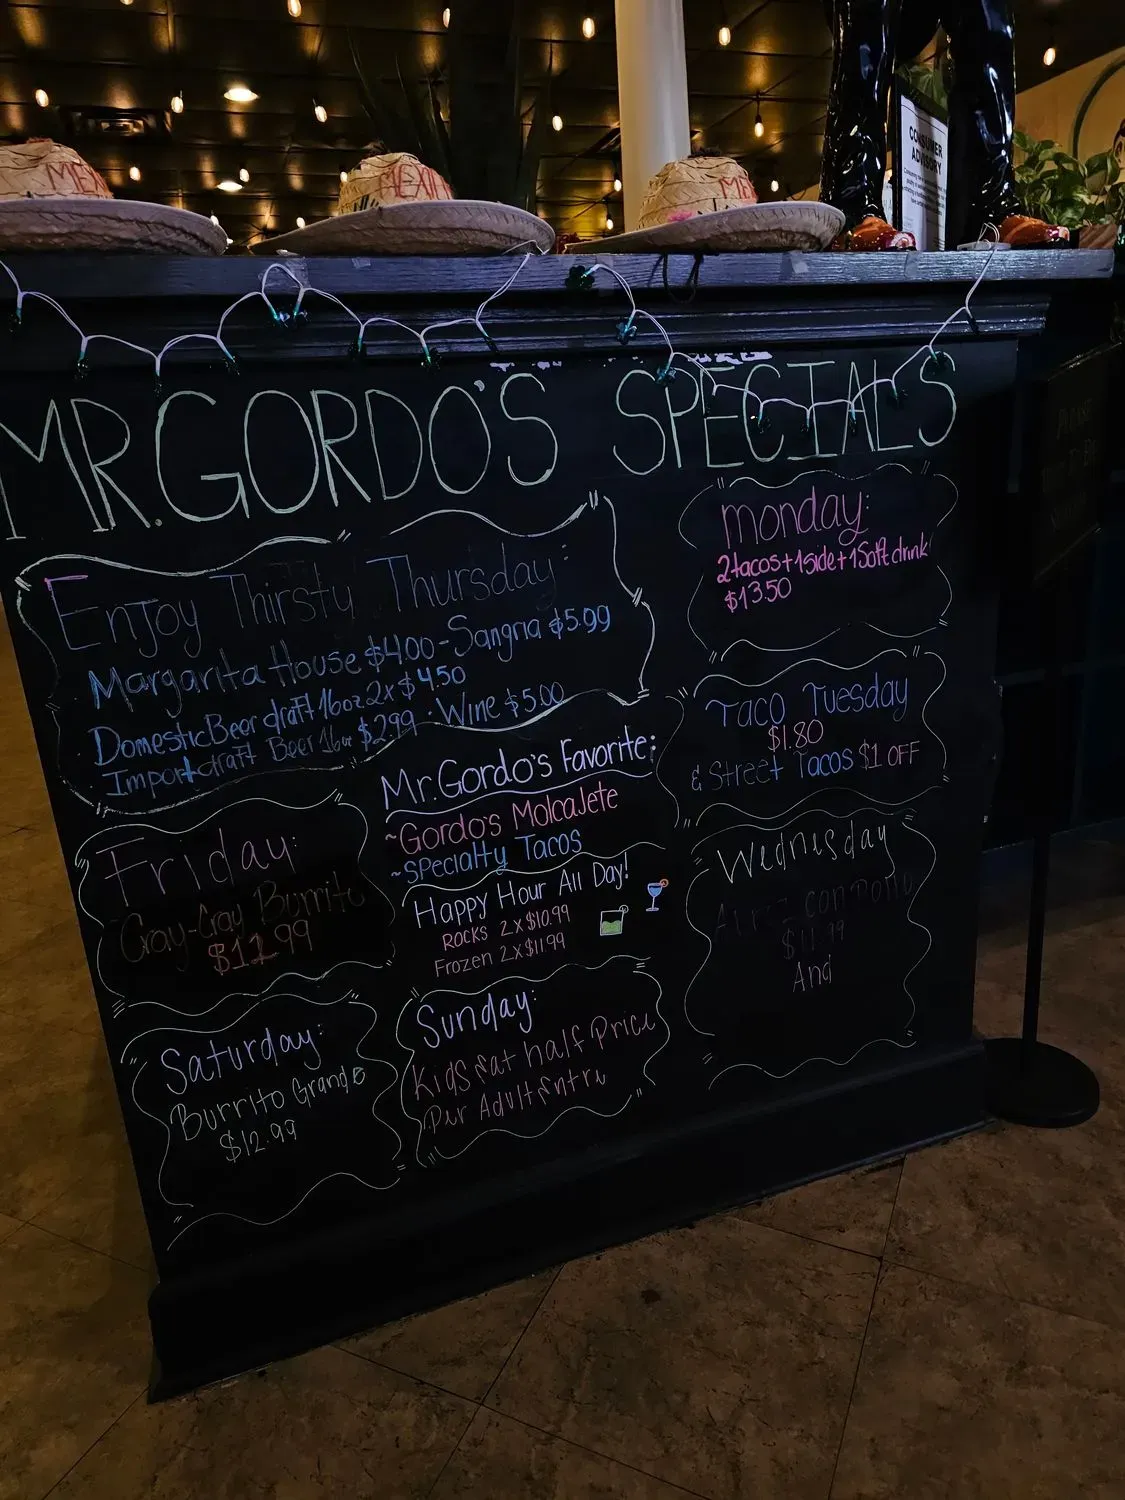 MEXI
MEXI
ME
CONSUMER
ADVISORY
MR.GORDO'S SPECIALS
Enjoy Thirsty Thursday:
Margarita House $4.00-Sangria $5.99
Domestic Beer draft 16oz 2x$4.50
Import draft Beer 16oz $2.99 · Wine $5.00
monday:
2tacos+1side+1Soft drink
$13.50
Taco Tuesday
$1.80
& Street Tacos $1 OFF
Wednesday
con Pollo
$11.99
And
Mr.Gordo's Favorite:
~Gordo's Molcajete
~Specialty Tacos
Happy Hour All Day!
Rocks 2x$10.99
Frozen 2x$11.99
Friday:
Cray-Cray Burrito
.99
Saturday:
Burrito Grande
$12.99
Sunday:
Kids Eat half Price
Per Adult Entre